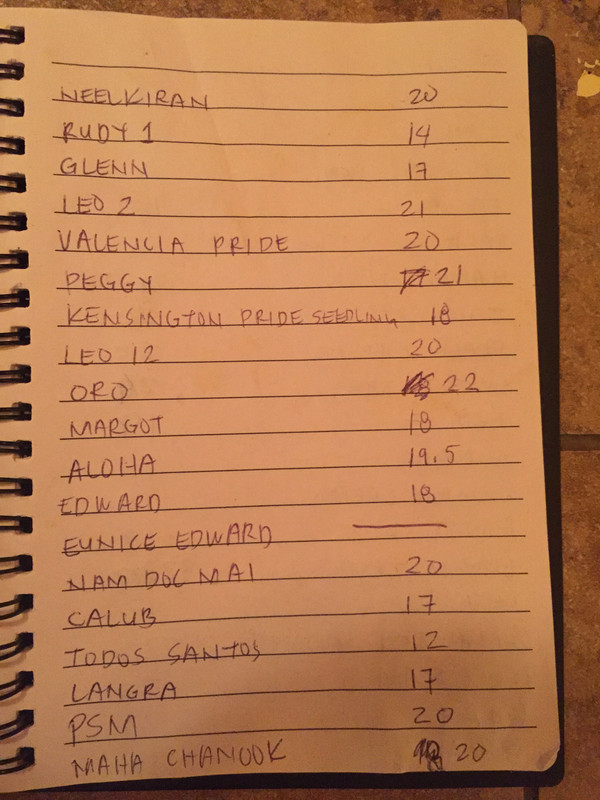 NEELKIRAN 20
RUDY 1 14
GLENN 17
LEO 2 21
VALENCIA PRIDE 20
PEGGY 21
KENSINGTON PRIDE SEEDLING 18
LEO 12 20
ORO 22
MARGOT 18
ALOHA 19.5
EDWARD 18
EUNICE EDWARD
NAM DOC MAI 20
CALUB 17
TODOS SANTOS 12
LANGRA 17
PSM 20
MAHA CHANOOK 20